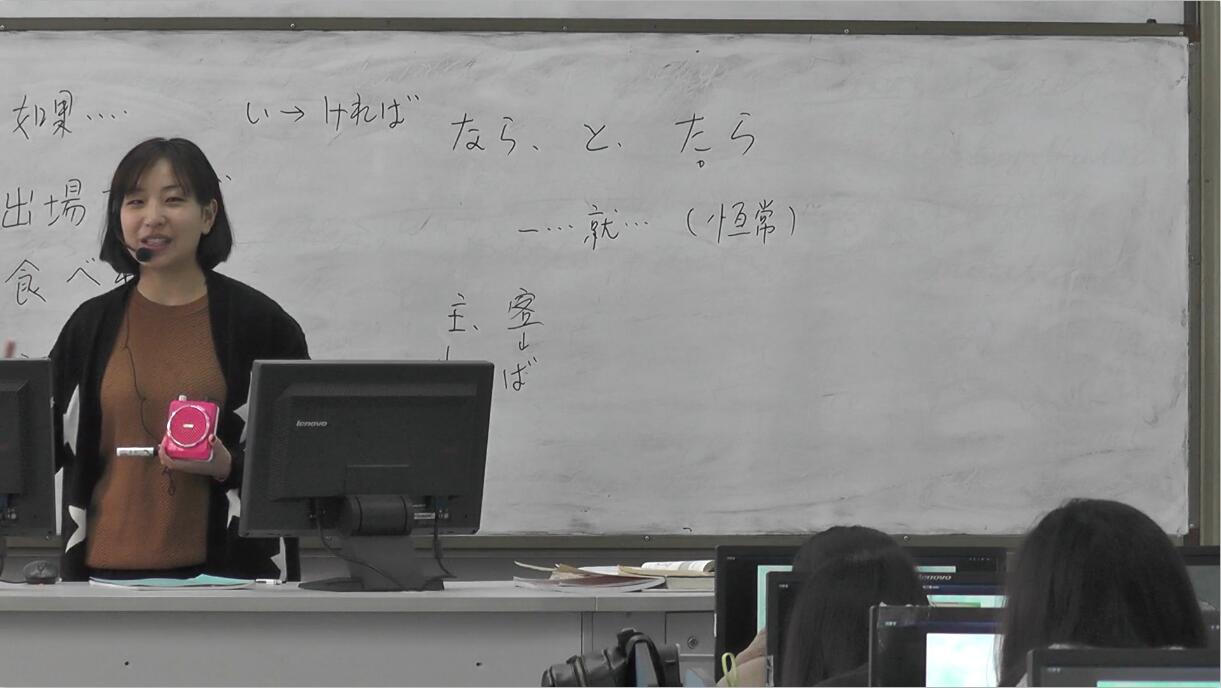 如果…… い→ければ
なら、と、たら
出場
一…就…（恒常）
食べ
主、客
ば
lenovo
lenovo